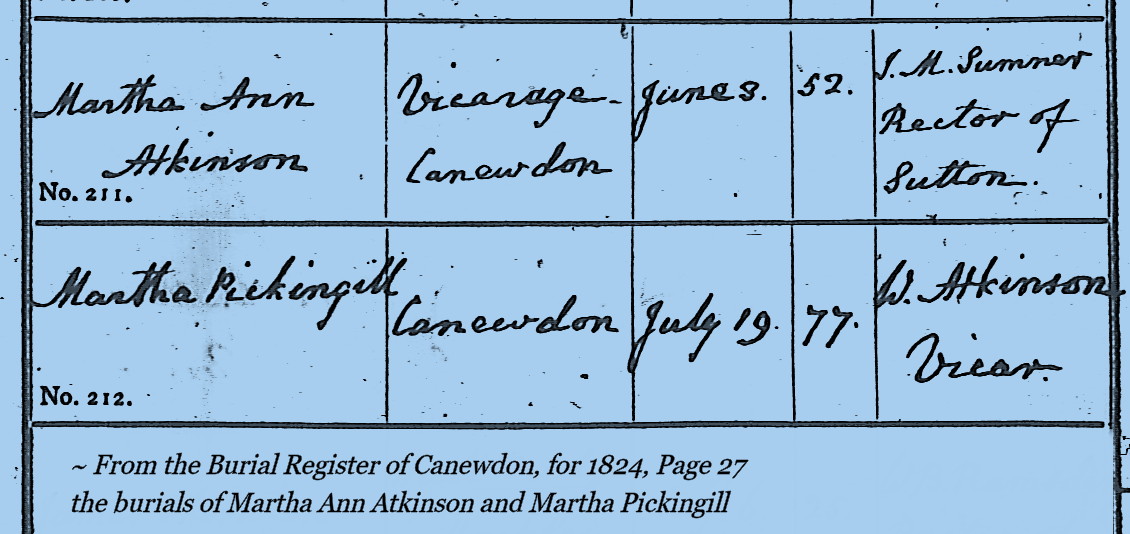 Martha Ann
Atkinson
No. 211.
Vicarage
Canewdon
June 3.
52.
J. M. Sumner
Rector of
Sutton.
Martha Pickingill
No. 212.
Canewdon
July 19.
77.
W. Atkinson
Vicar.
~ From the Burial Register of Canewdon, for 1824, Page 27
the burials of Martha Ann Atkinson and Martha Pickingill